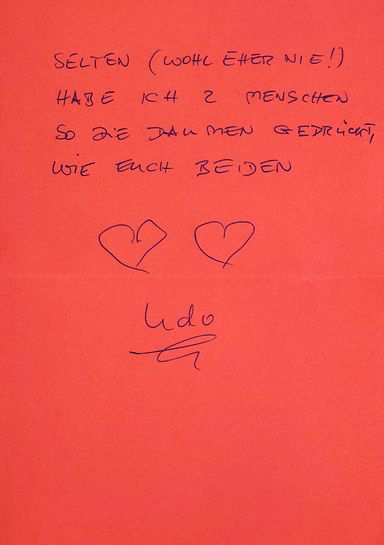 SELTEN (WOHL EHER NIE!)
HABE ICH 2 MENSCHEN
SO DIE DAUMEN GEDRÜCKT,
WIE EUCH BEIDEN
Udo